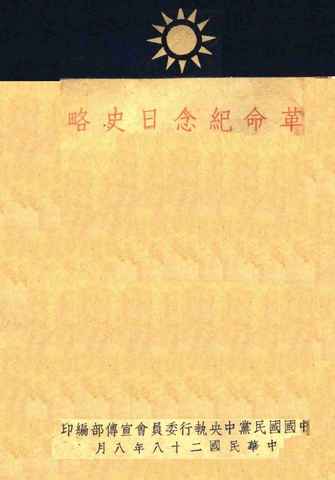 革命紀念日史略
中國國民黨中央執行委員會宣傳部編印
中華民國二十八年八月